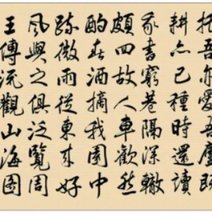 托吾亦愛吾廬既
耕亦已種時還讀
我書窮巷隔深轍
頗回故人車歡然
酌春酒摘我園中
疏微雨從東來好
風與之俱泛覽周
王傳流觀山海圖